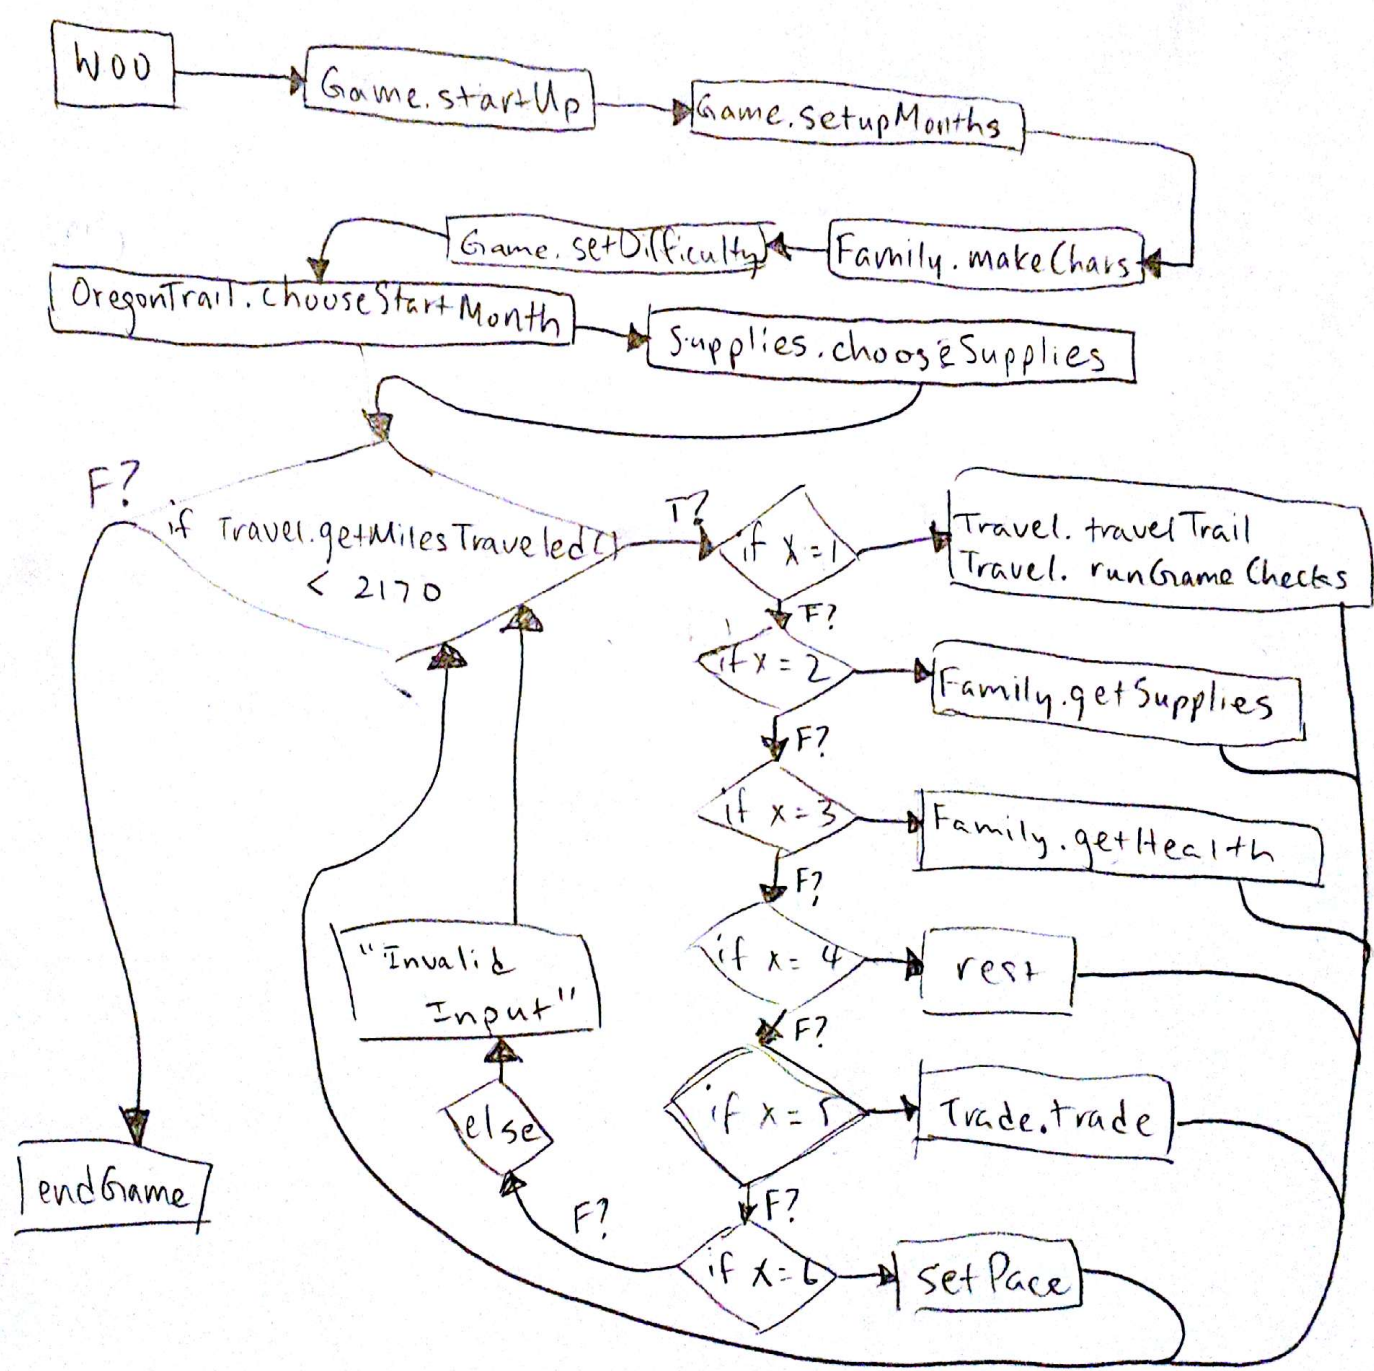 WOO
Game.startUp
Game.setupMonths
Game.setDifficulty
Family.makeChars
OregonTrail.chooseStartMonth
Supplies.chooseSupplies
F?
if Travel.getMilesTraveled()
< 2170
T?
if x=1
Travel.travelTrail
Travel.runGameChecks
F?
if x=2
Family.getSupplies
F?
if x=3
Family.getHealth
F?
if x=4
rest
F?
if x=5
Trade.trade
F?
if x=6
setPace
F?
else
"Invalid
Input"
endGame